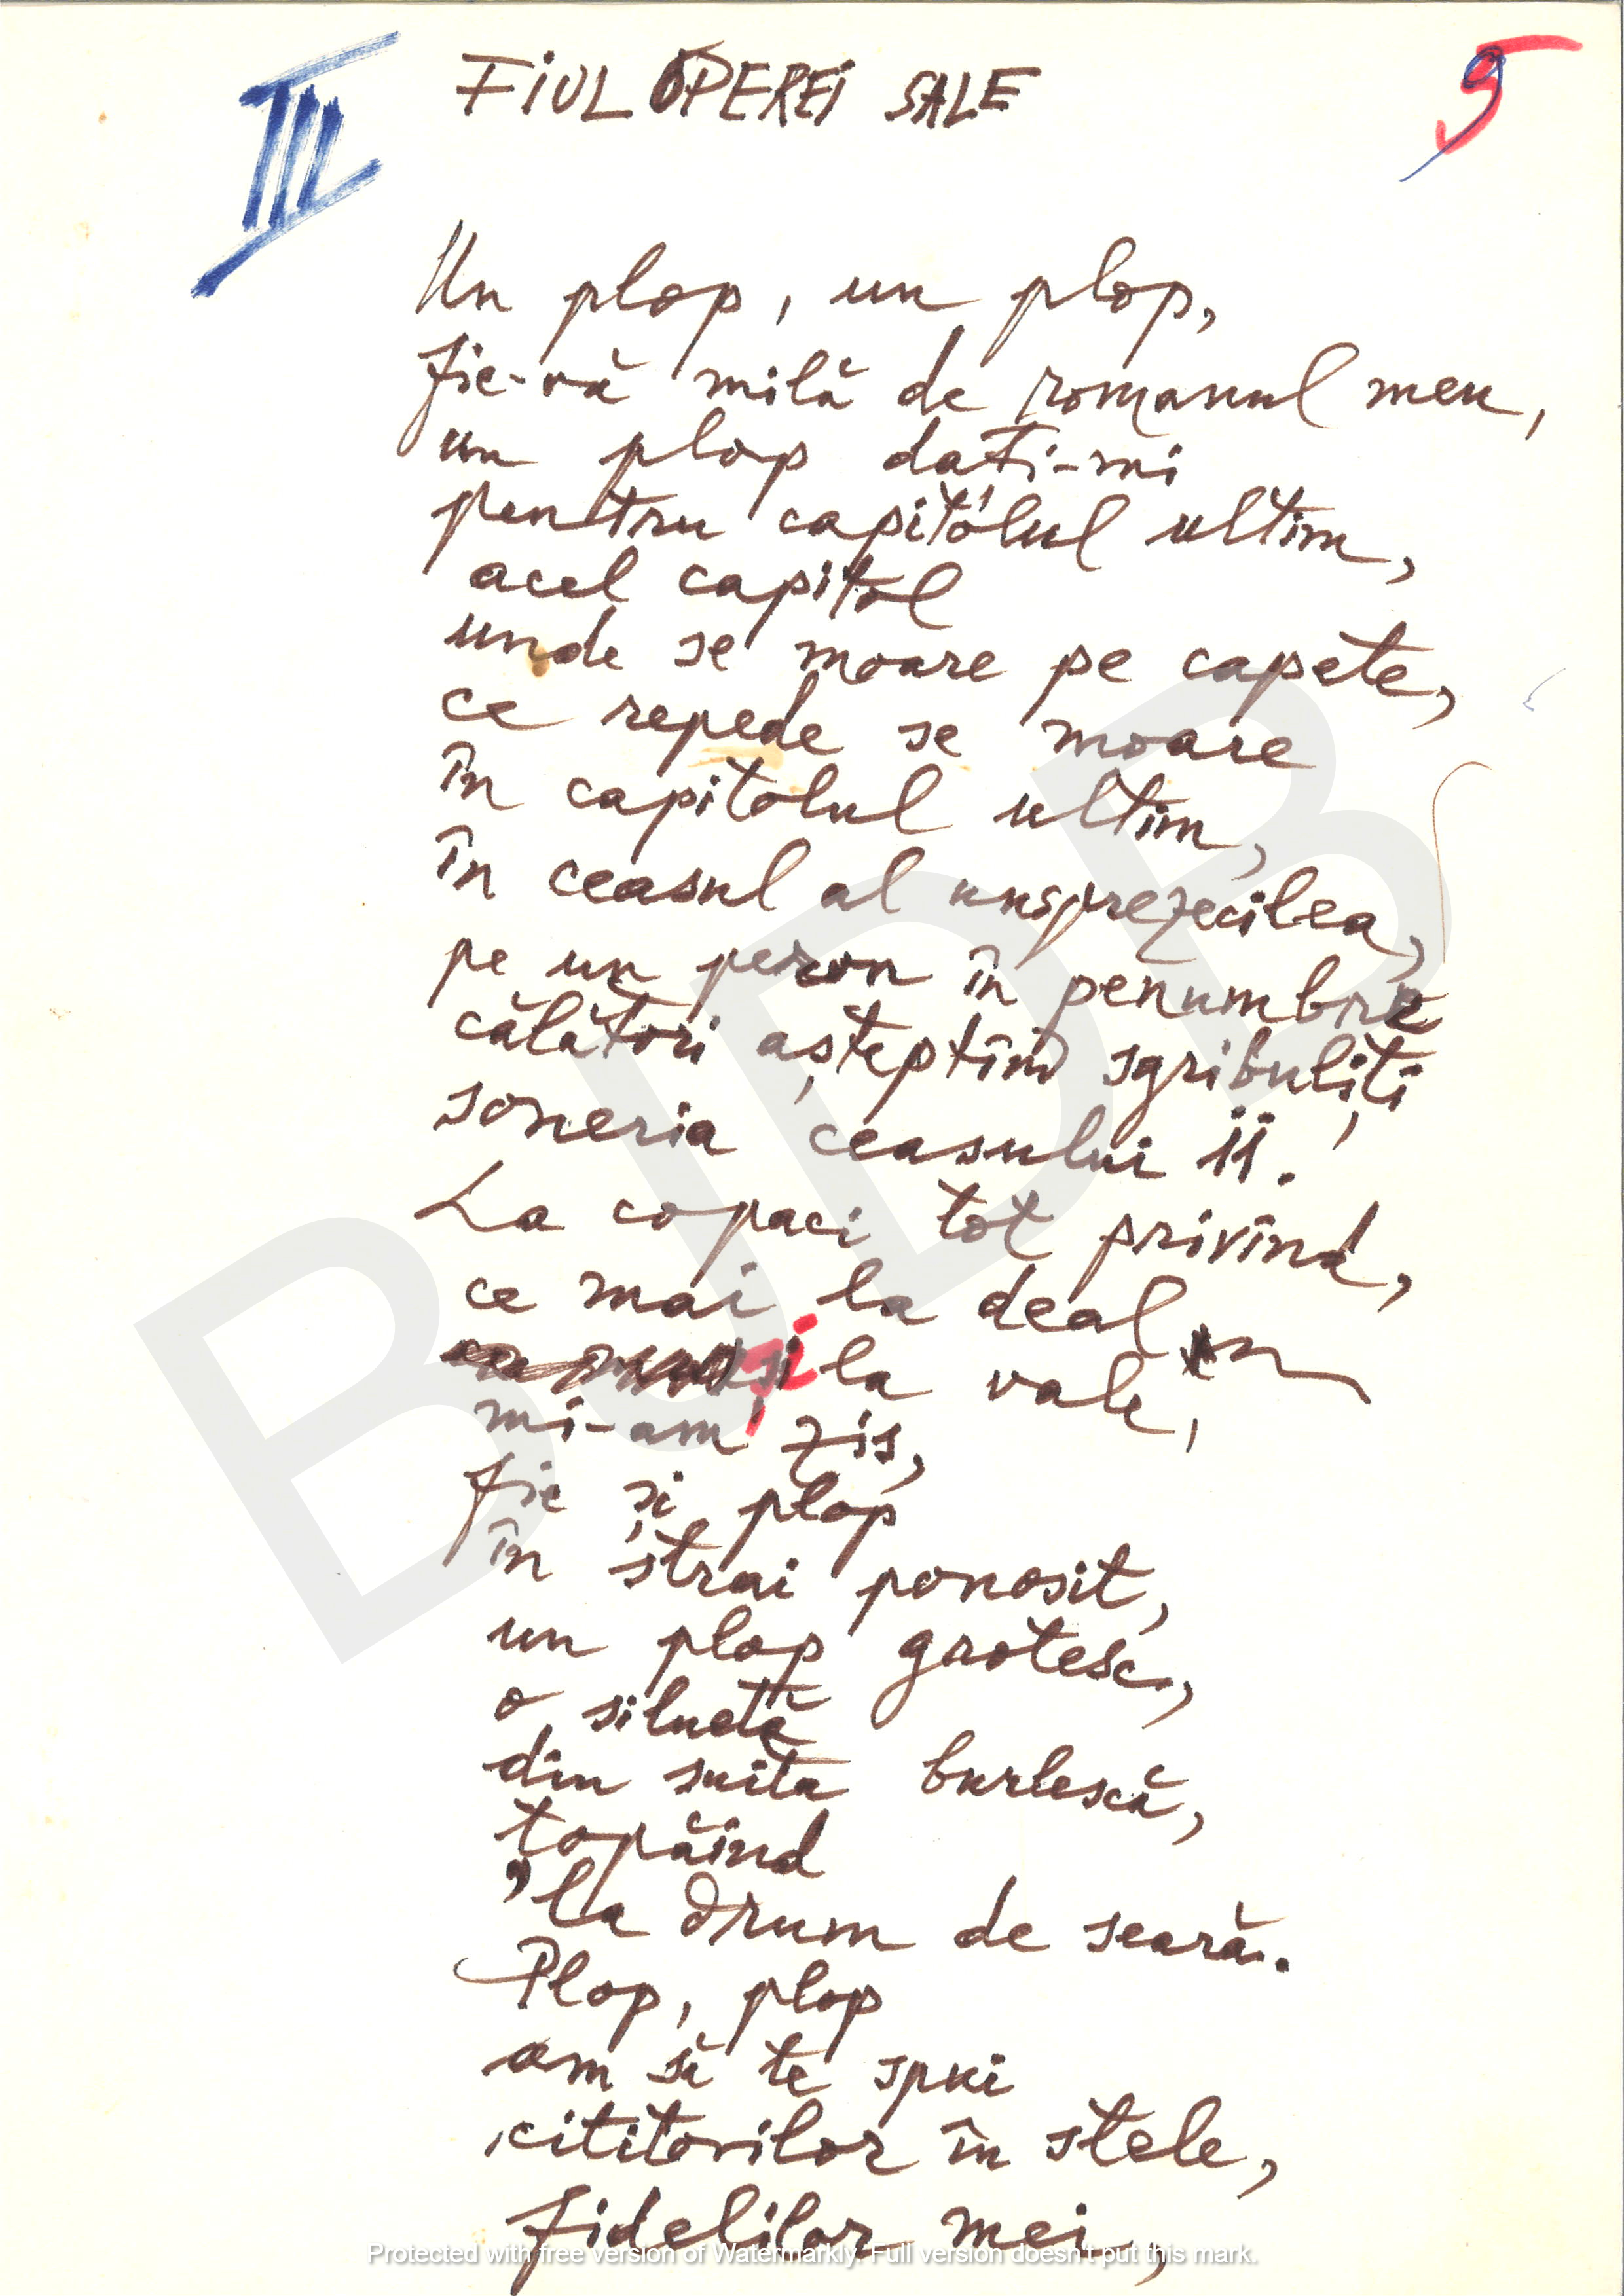 III
FIUL OPEREI SALE
9
Un plop, un plop,
fie-vă milă de romanul meu,
un plop dați-mi
pentru capitolul ultim,
acel capitol
unde se moare pe capete,
ce repede se moare
în capitolul ultim,
în ceasul al unsprezecilea,
pe un peron în penumbră
călători așteptînd sgribuliți
soneria ceasului 11.
La copaci tot privind,
ce mai la deal
și la vale,
mi-am zis,
fie și plop
în strai ponosit,
un plop grotesc,
o siluetă
din suita burlescă,
țopăind
la drum de seară.
Plop, plop
am să te spui
cititorilor în stele,
fidelilor mei,
BJDB
Protected with free version of Watermarkly. Full version doesn't put this mark.